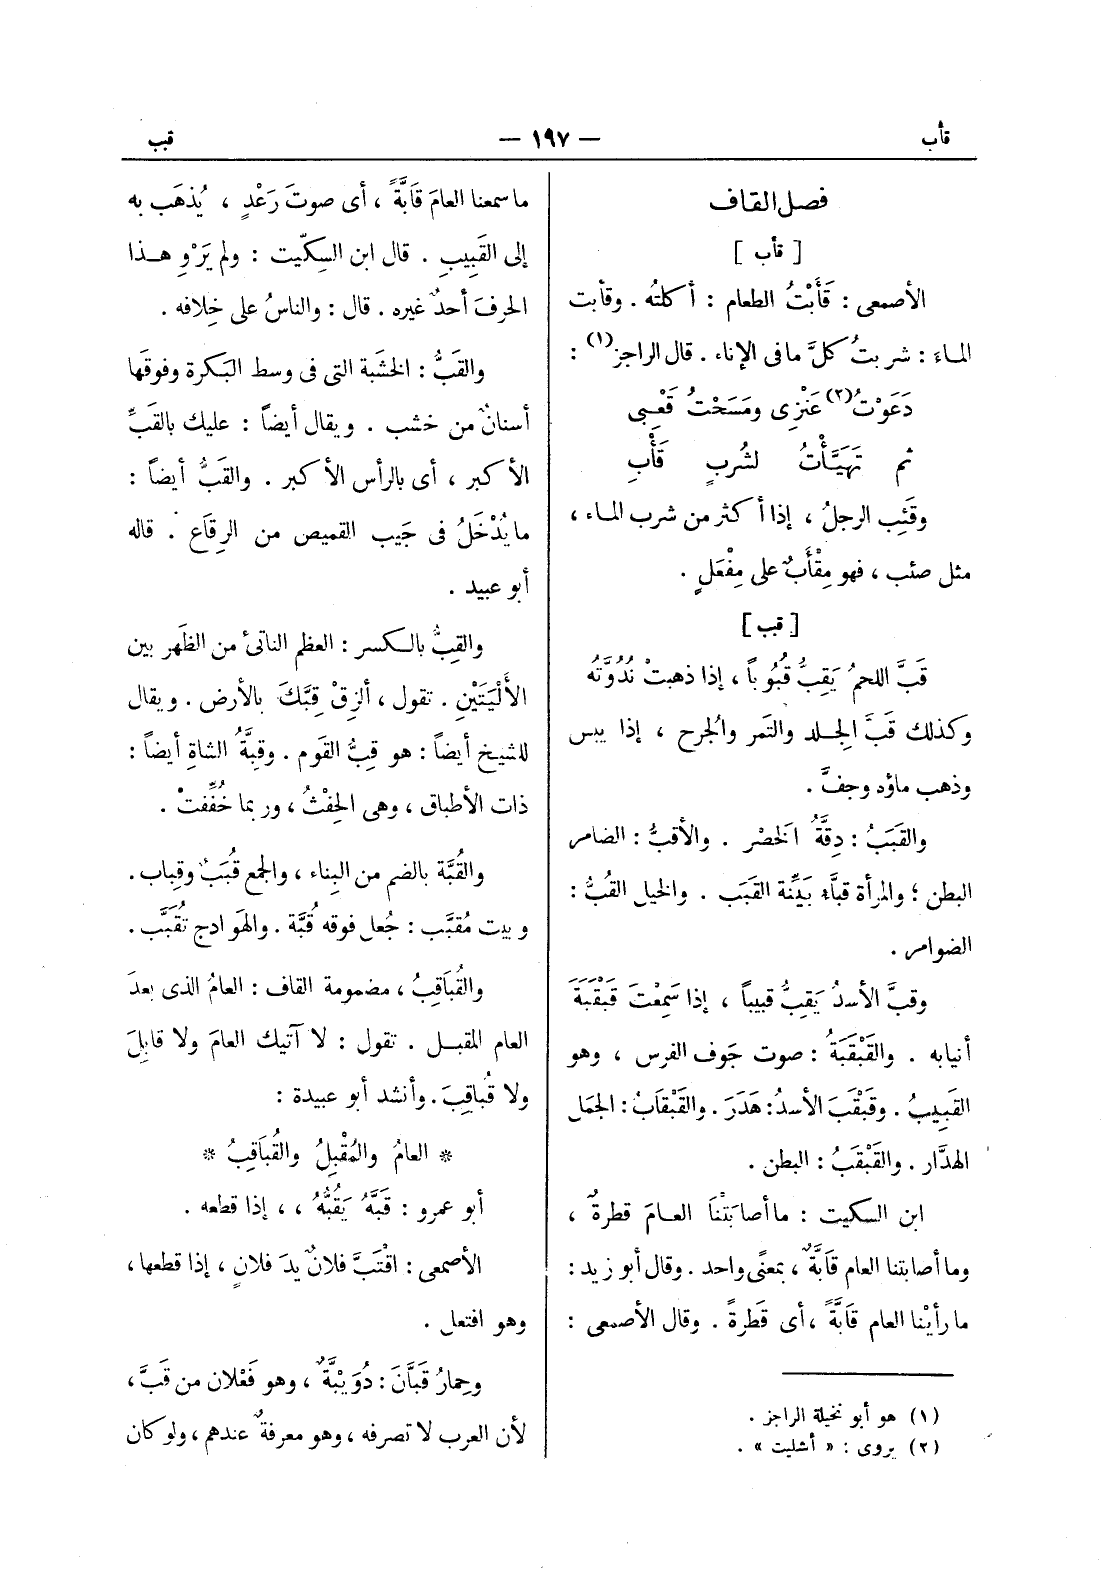 قأب
— ١٩٧ —
قبب
فصل القاف
[ قأب ]
الأصمعى : قَأَبْتُ الطعام : أكلتُه . وقأبت
الماء : شربتُ كلَّ ما فى الإناء . قال الراجز(١) :
دَعَوْتُ(٢) عَنْزِى ومَسَحْتُ قَعْبِى
ثم تَهَيَّأْتُ لشُربٍ قَأْبِ
وقَئِب الرجلُ ، إذا أكثر من شرب الماء ،
مثل صئب ، فهو مِقْأَبٌ على مِفْعَلٍ .
[ قبب ]
قَبَّ اللحمُ يَقِبُّ قُبُوباً ، إذا ذهبتْ نُدُوَّتُه
وكذلك قَبَّ الجلد والتَمر والجُرح ، إذا يبس
وذهب ماؤه وجفَّ .
والقَبَبُ : دِقَّةُ الخَصْر . والأقبُّ : الضامر
البطن ؛ والمرأة قبَّاء بَيِّنة القبَب . والخيل القُبُّ :
الضوامر .
وقبَّ الأسدُ يَقِبُّ قبيباً ، إذا سَمِعْتَ قَبْقَبَةَ
أنيابه . والقَبْقَبَةُ : صوت جَوف الفرس ، وهو
القَبِيبُ . وقَبْقَبَ الأسدُ : هَدَرَ . والقَبْقَابُ : الجمل
الهدَّار . والقَبْقَبُ : البطن .
ابن السكيت : ما أصابَتْنَا العامَ قطرةٌ ،
وما أصابتنا العام قَابَّةٌ ، بمعنًى واحد . وقال أبو زيد :
ما رأيْنا العام قَابَّةً ، أى قَطرةً . وقال الأصمعى :
(١) هو أبو نخيلة الراجز .
(٢) يروى : « أشليت » .
ما سمعنا العامَ قَابَّةً ، أى صوتَ رَعْدٍ ، يُذهَب به
إلى القَبِيبِ . قال ابن السِكِّيت : ولم يَرْوِ هذا
الحرفَ أحدٌ غيره . قال : والناسُ على خِلافه .
والقَبُّ : الخشبة التى فى وسط البَكرة وفوقَها
أسنانٌ من خشب . ويقال أيضاً : عليك بالقَبِّ
الأكبر ، أى بالرأس الأكبر . والقَبُّ أيضاً :
ما يُدْخَلُ فى جَيب القميص من الرِقَاع . قاله
أبو عبيد .
والقِبُّ بالكسر : العظم الناتئ من الظَهر بين
الأَلْيَتَيْنِ . تقول ، ألزِقْ قِبَّكَ بالأرض . ويقال
للشيخ أيضاً : هو قِبُّ القَوم . وقِبَّةُ الشاةِ أيضاً :
ذات الأطباق ، وهى الحِفْثُ ، وربما خُفِّفتْ .
والقُبَّة بالضم من البِناء ، والجمع قُبَبٌ وقِباب .
وبيت مُقبَّب : جُعل فوقه قُبَّة . والهَوادج تُقَبَّب .
والقُبَاقِبُ ، مضمومة القاف : العامُ الذى بعدَ
العام المقبل . تقول : لا آتيك العامَ ولا قابِلَ
ولا قُباقِبَ . وأنشد أبو عبيدة :
* العامُ والمُقْبِلُ والقُبَاقِبُ *
أبو عمرو : قَبَّهُ يَقُبُّهُ ، ، إذا قطعه .
الأصمعى : اقْتَبَّ فلانٌ يدَ فلانٍ ، إذا قطعها ،
وهو افتعل .
وحِمارُ قَبَّانَ : دُوَيْبَّةٌ ، وهو فَعْلان من قَبَّ ،
لأن العرب لا تصرفه ، وهو معرفةٌ عندهم ، ولو كان